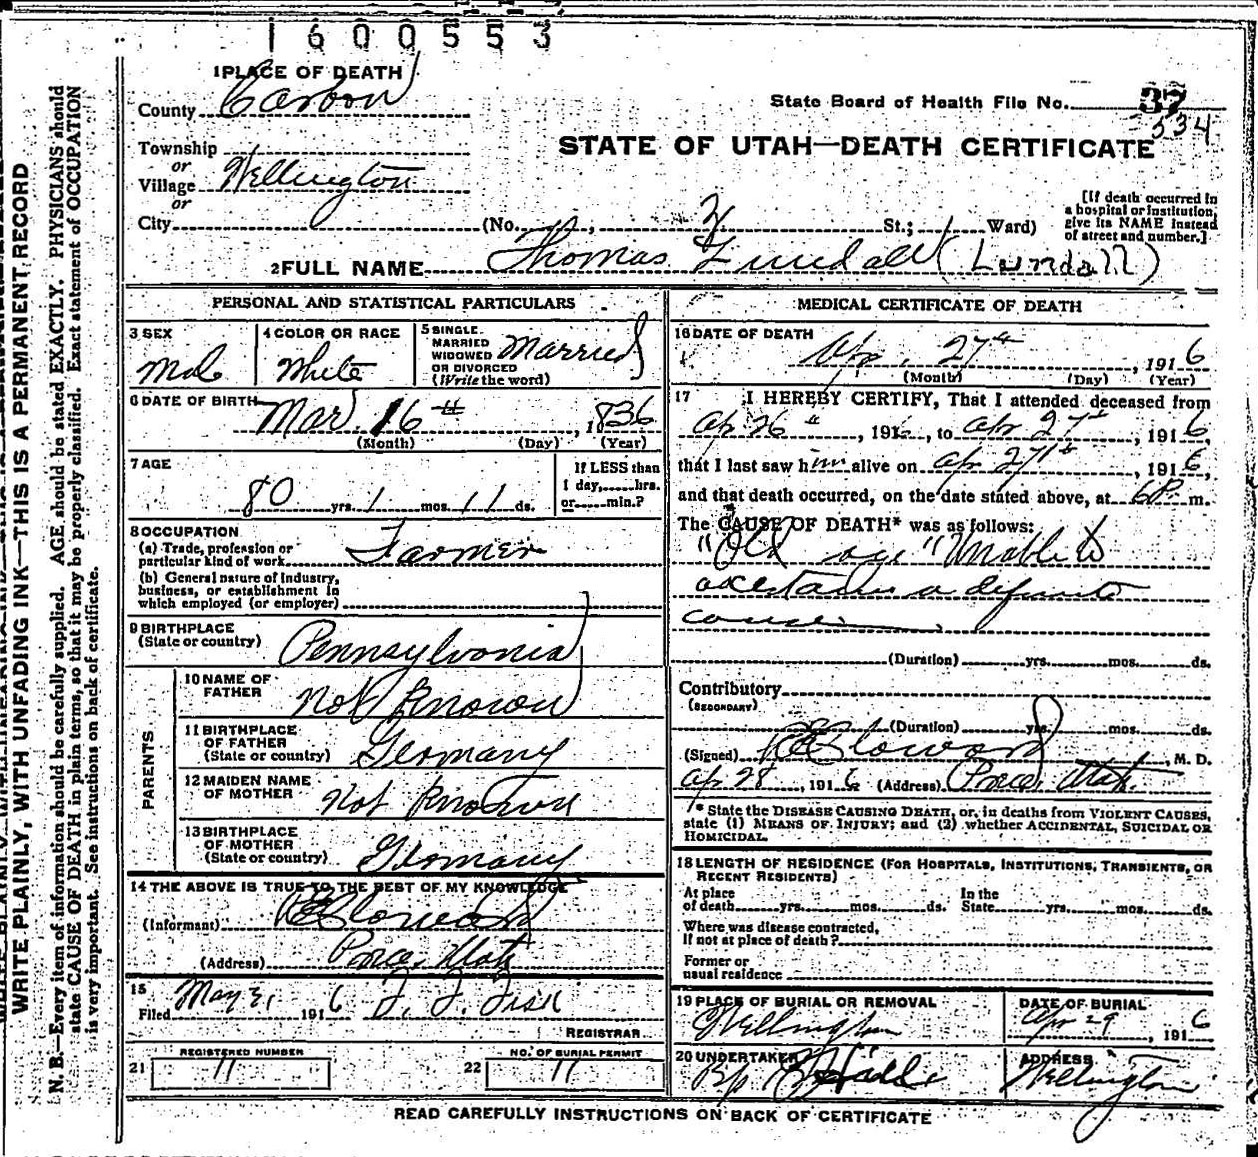 1600553
1 PLACE OF DEATH
County Carbon
State Board of Health File No. 37
534
STATE OF UTAH—DEATH CERTIFICATE
Township
or
Village Wellington
or
City (No. , St.; Ward)
[If death occurred in a hospital or institution, give its NAME instead of street and number.]
2 FULL NAME Thomas (Lundall)
PERSONAL AND STATISTICAL PARTICULARS
3 SEX Male
4 COLOR OR RACE White
5 SINGLE. MARRIED WIDOWED OR DIVORCED (Write the word) Married
6 DATE OF BIRTH Mar 16th, 1836
(Month) (Day) (Year)
7 AGE 80 yrs. 1 mos. 11 ds.
If LESS than 1 day, hrs. or min.?
8 OCCUPATION
(a) Trade, profession or particular kind of work Farmer
(b) General nature of Industry, business, or establishment in which employed (or employer)
9 BIRTHPLACE (State or country) Pennsylvania
PARENTS
10 NAME OF FATHER Not Known
11 BIRTHPLACE OF FATHER (State or country) Germany
12 MAIDEN NAME OF MOTHER Not Known
13 BIRTHPLACE OF MOTHER (State or country) Germany
14 THE ABOVE IS TRUE TO THE BEST OF MY KNOWLEDGE
(Informant)
(Address) Price, Utah
15 Filed May 31 1916 Fisk
REGISTRAR.
21 REGISTERED NUMBER 11
22 NO. OF BURIAL PERMIT 11
MEDICAL CERTIFICATE OF DEATH
16 DATE OF DEATH Ap. 27th, 1916
(Month) (Day) (Year)
17 I HEREBY CERTIFY, That I attended deceased from
Ap 26", 1916, to Apr 27th, 1916,
that I last saw him alive on Ap 27th, 1916,
and that death occurred, on the date stated above, at 6 P. m.
The CAUSE OF DEATH* was as follows:
"Old age" Unable to
ascertain a definite
cause.
(Duration) yrs. mos. ds.
Contributory
(SECONDARY)
(Duration) yrs. mos. ds.
(Signed) , M. D.
Ap 28, 1916 (Address) Price, Utah.
* State the DISEASE CAUSING DEATH, or, in deaths from VIOLENT CAUSES, state (1) MEANS OF INJURY; and (2) whether ACCIDENTAL, SUICIDAL OR HOMICIDAL.
18 LENGTH OF RESIDENCE (FOR HOSPITALS, INSTITUTIONS, TRANSIENTS, OR RECENT RESIDENTS)
At place of death yrs. mos. ds. In the State yrs. mos. ds.
Where was disease contracted, If not at place of death?
Former or usual residence
19 PLACE OF BURIAL OR REMOVAL Wellington
DATE OF BURIAL Ap 29, 1916
20 UNDERTAKER
ADDRESS Wellington
READ CAREFULLY INSTRUCTIONS ON BACK OF CERTIFICATE
WRITE PLAINLY, WITH UNFADING INK—THIS IS A PERMANENT RECORD
N. B.—Every item of information should be carefully supplied. AGE should be stated EXACTLY. PHYSICIANS should
state CAUSE OF DEATH in plain terms, so that it may be properly classified. Exact statement of OCCUPATION
is very important. See instructions on back of certificate.